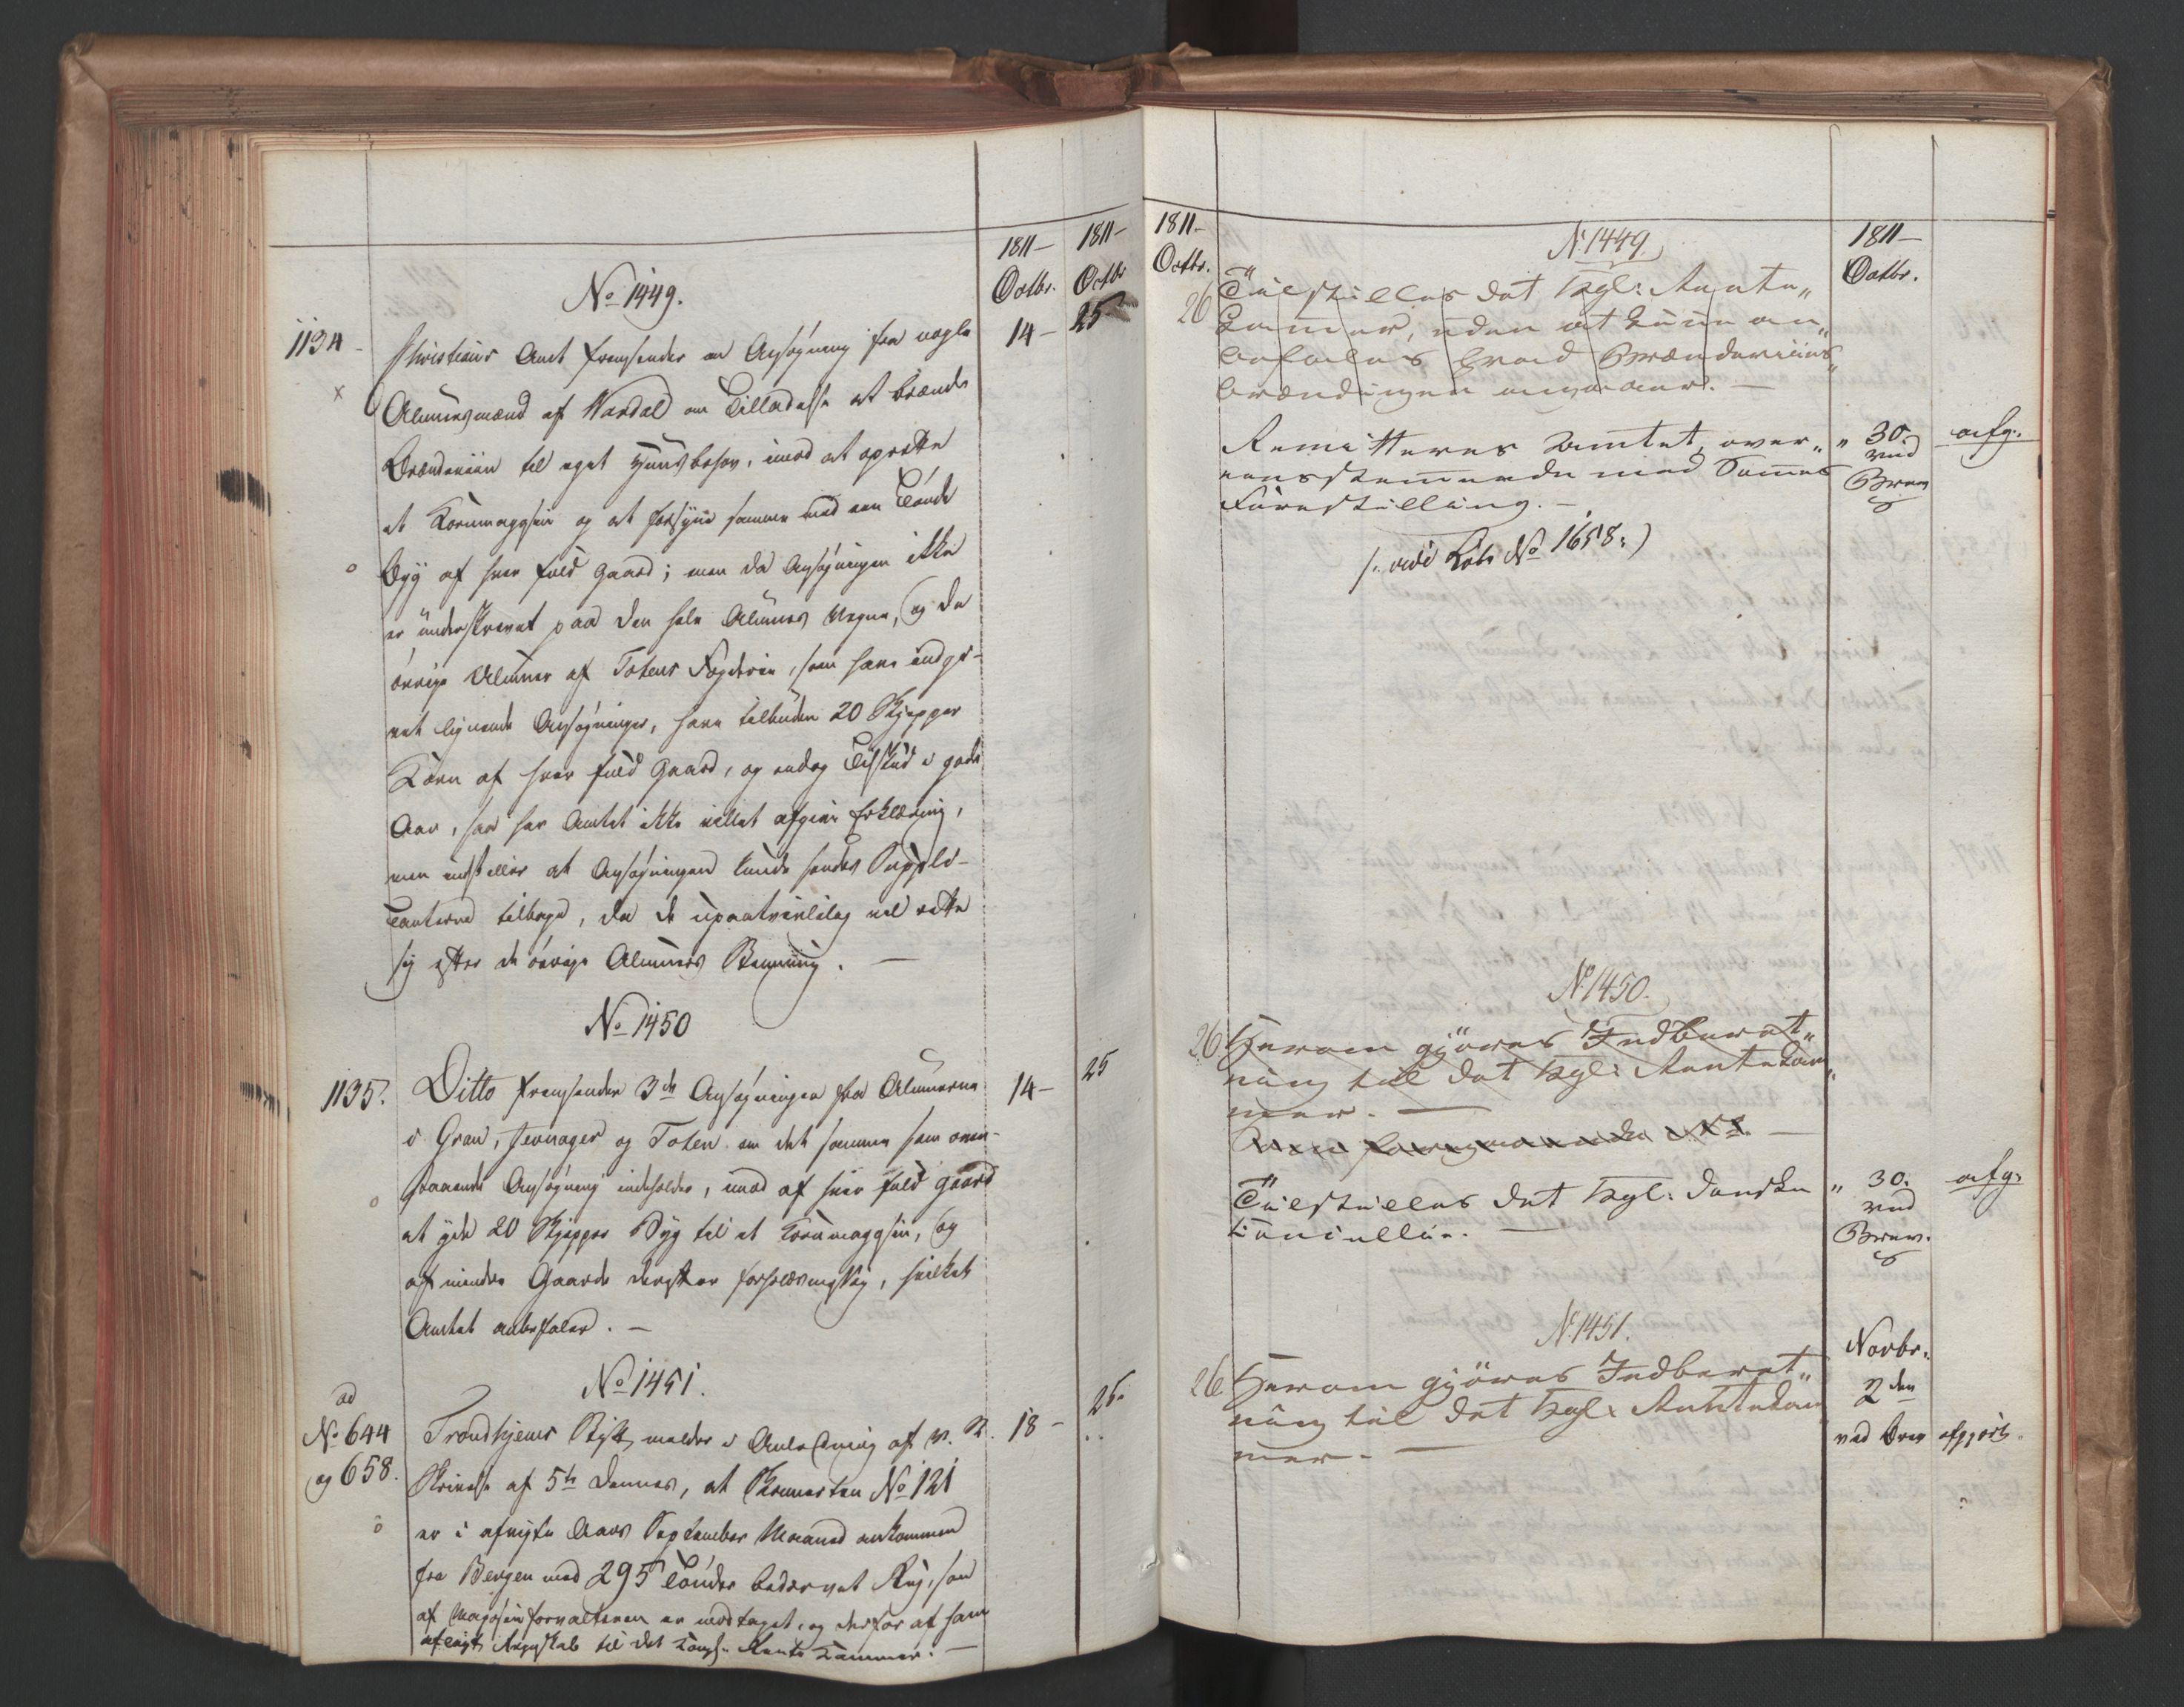 1811–
Octbr.
1811–
Octbr
No 1449.
1134 –
14 –
25
Christians Amt fremsender en Ansøgning fra nogle
Almuesmænd af Wardal om Tilladelse at brænde
Brændeviin til eget Huusbehov, imod at oprette
et Kornmagazin og at forsyne samme med een Tønde
Byg af hver fuld Gaard; men da Ansøgningen ikke
er underskrevet paa den hele Almues Vegne, og de
øvrige Almuer af Totens Fogderie, som have indgi-
vet lignende Ansøgninger, have tilbuden 20 Skjepper
Korn af hver fuld Gaard, og endog Tilskud i gode
Aar, saa har Amtet ikke villet afgive Erklæring,
men indstiller at Ansøgningen kunde sendes Suppli-
canterne tilbage, da de upaatvivlelig vil rette
sig efter de øvrige Almuers Stemning. –
No 1450
1135.
14 –
25
Ditto fremsender 3de Ansøgninger fra Almuerne
i Gran, Jevnager og Toten om det samme som oven-
staaende Ansøgning indeholder, imod af hver fuld Gaard
at yde 20 Skjepper Byg til et Kornmagazin, og
af mindre Gaarde derefter forholdsmæssig, hvilket
Amtet anbefaler. –
No 1451.
ad
No 644
og 658.
18 –
25.
Trondhjems Stift melder i Anledning af P. R.
Skrivelse af 5te dennes, at Skonnerten No 121
er i afvigte Aars September Maaned ankommen
fra Bergen med 295 Tønder bedærvet Rug, som
af Magazinforvalteren er modtaget, og derfor af ham
aflagt Regnskab til det Kongl. Rente Kammer. –
1811 –
Octbr.
1811 –
Octbr.
No 1449.
26
Tilstilles det Kgl: Rente„
Kammer, uden at kunne an„
befales hvad Brændeviins„
brændingen angaaer. –
Remitteres Amtet, over„
eensstemmende med Sammes
Forestilling. –
„ 30.
ved
Brev
afg:
/: vide Løb: No 1658 :/
No 1450.
26
Herom gjöres Indberet„
ning til det Kgl: Rentekam„
mer. –
Tilstilles det Kgl: danske
Cancellie. –
„ 30.
ved
Brev.
afg:
No 1451.
26
Herom gjöres Indberet„
ning til det Kgl: Rentekam„
mer. –
Novbr.
2den
ved Brev
afgjort.